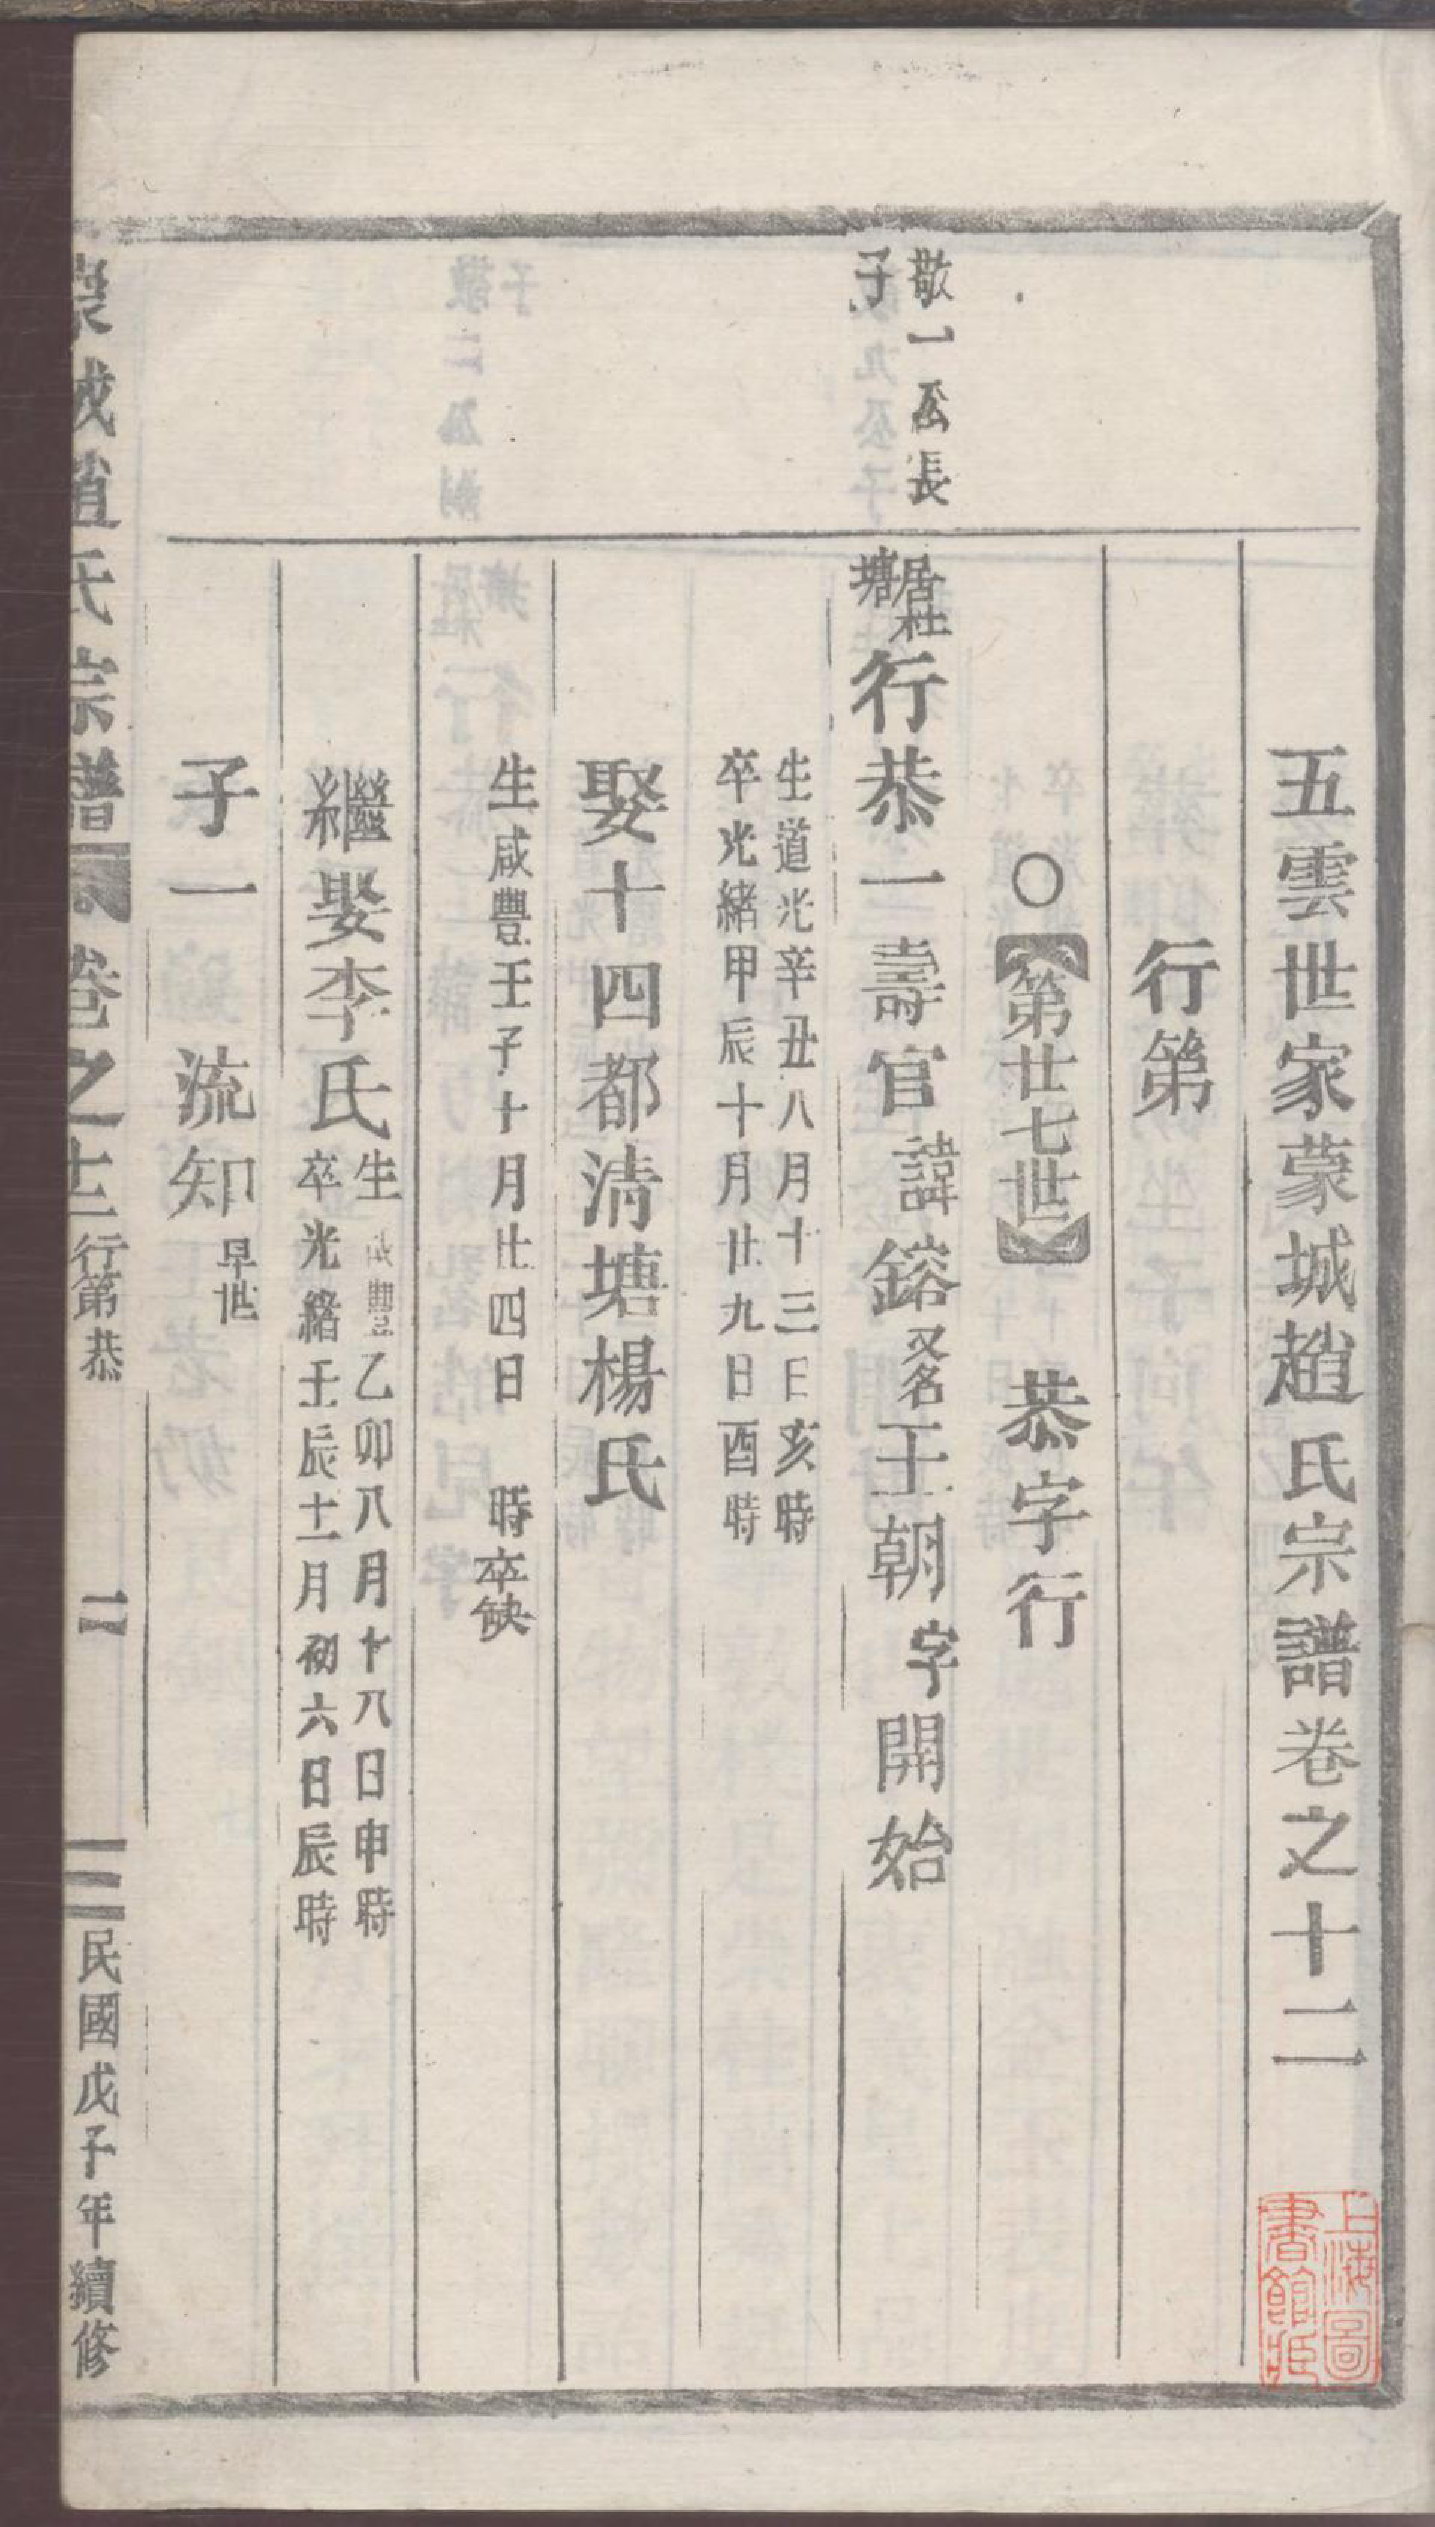 五雲世家蒙城趙氏宗譜卷之十二
行第
○第廿七世 恭字行
敬一公長
子
居社
塘
行恭一壽官諱鎔又名王朝字開始
生道光辛丑八月十三日亥時
卒光緒甲辰十月廿九日酉時
娶十四都清塘楊氏
生咸豐壬子十月廿四日 時卒缺
繼娶李氏
生咸豐乙卯八月十八日申時
卒光緒壬辰十一月初六日辰時
子一 流知早世
蒙城趙氏宗譜 卷之十二 行第恭 一 民國戊子年續修
上海圖
書館臧